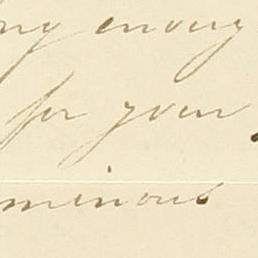 ng enoug
for your
minous